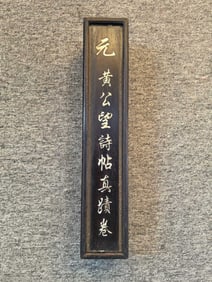 元 黄公望詩帖真蹟卷